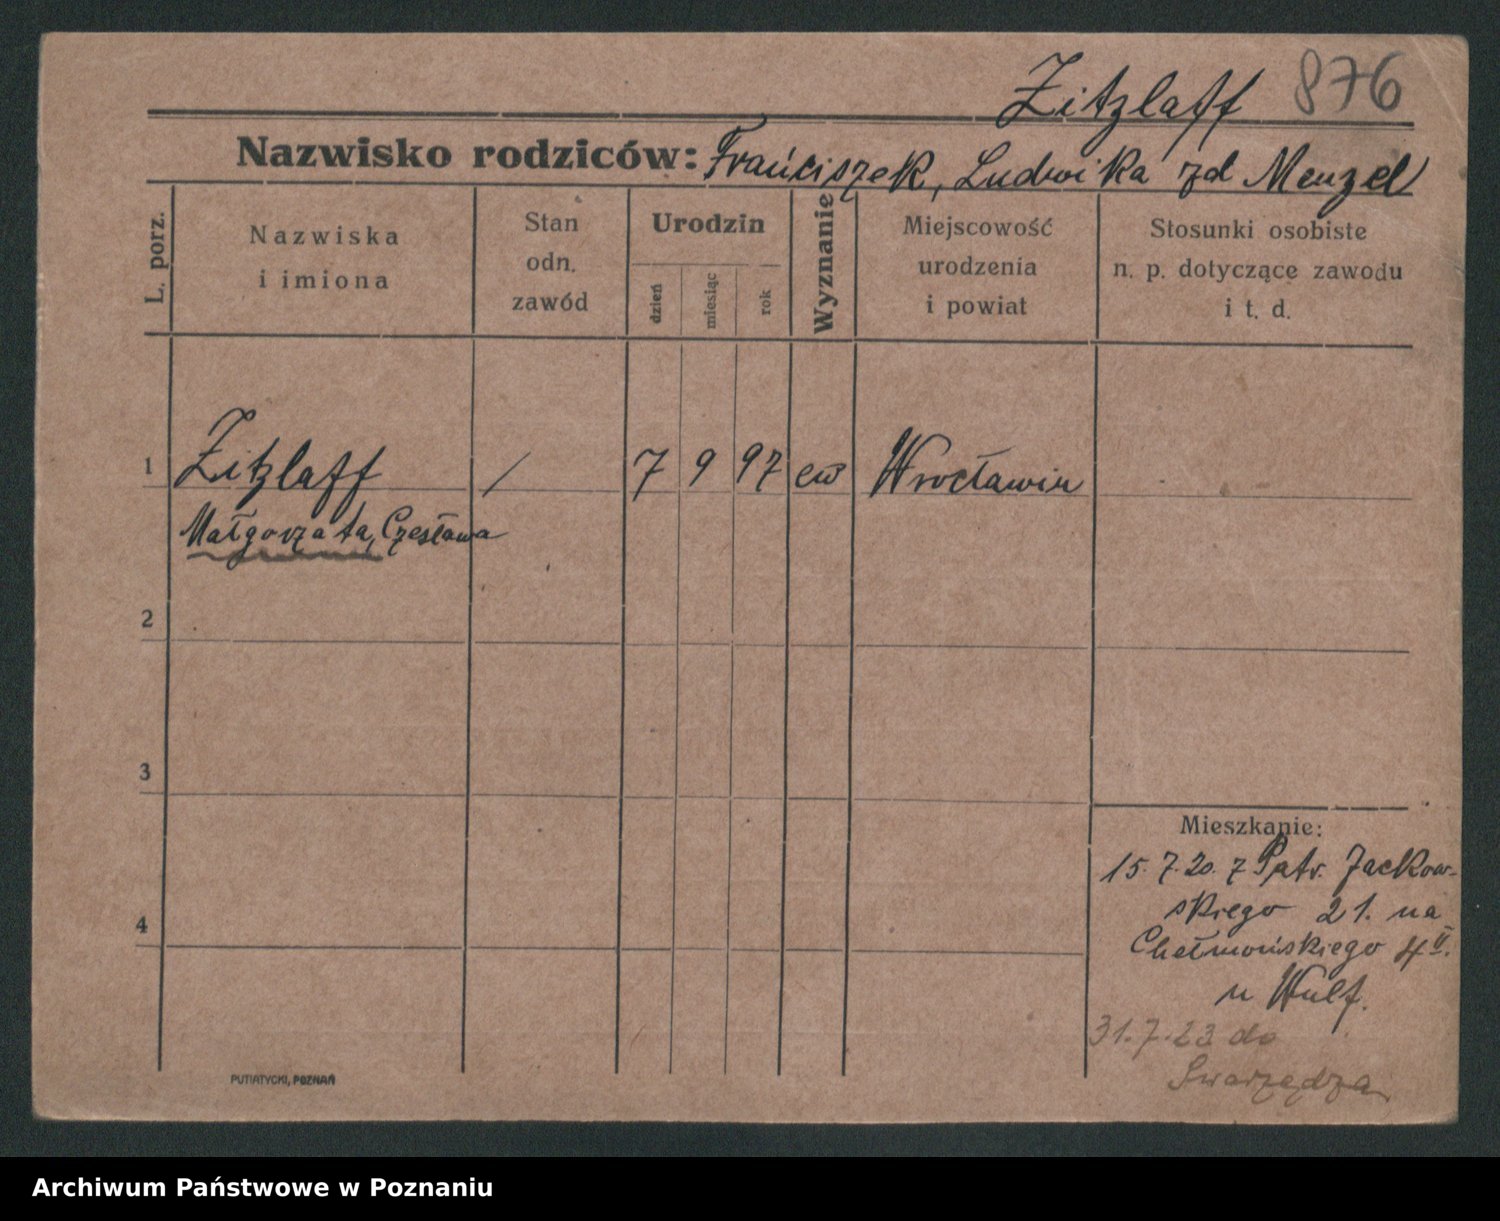 Zitzlaff 876
Nazwisko rodziców: Frańciszek, Ludwika zd Menzel
L. porz.
Nazwiska
i imiona
Stan
odn.
zawód
Urodzin
dzień
miesiąc
rok
Wyznanie
Miejscowość
urodzenia
i powiat
Stosunki osobiste
n. p. dotyczące zawodu
i t. d.
1 Zitzlaff / 7 9 97 ew Wrocławiu
Małgorzata, Czesława
2
3
4
Mieszkanie:
15. 7. 20. z Patr. Jackow-
skiego 21. na
Chełmońskiego 4 II.
u Wulf.
31. 7. 23 do
Swarzędza
PUTIATYCKI, POZNAŃ
Archiwum Państwowe w Poznaniu